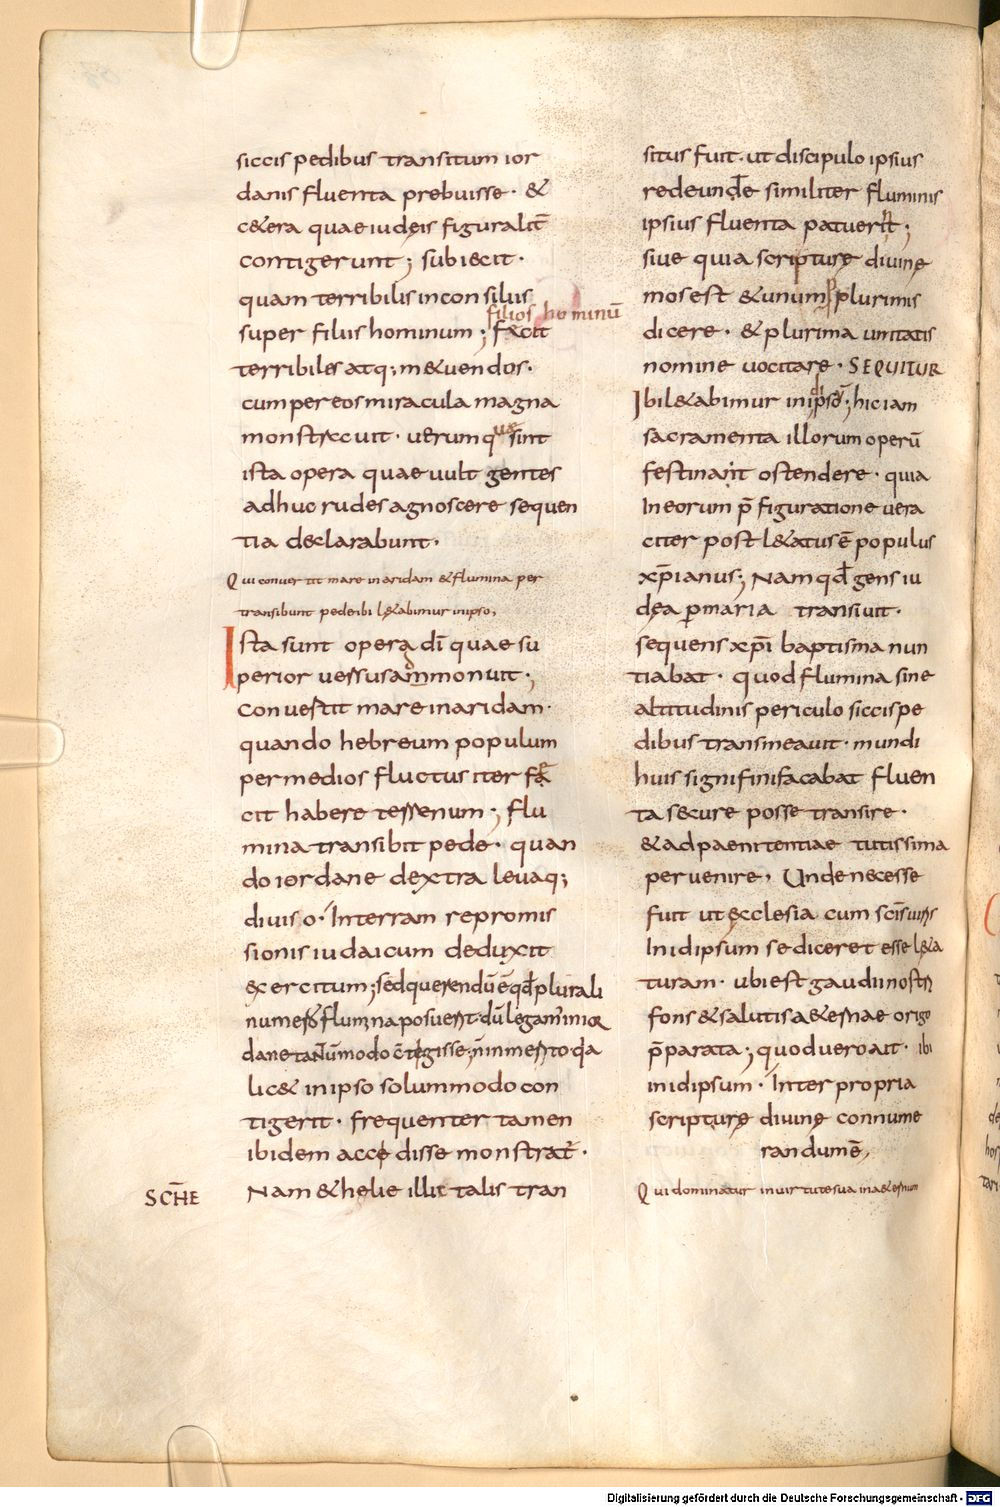 siccis pedibus transitum ior
danis fluenta prebuisse · &
c&era quae iudeis figuralit̄
contigerunt ; subiecit ·
quam terribilis in consiliis
filios hominū
super filius hominum ; facit
terribiles atq; m&uendos ·
cum per eos miracula magna
monstrauit · uerum quae sint
ista opera quae uult gentes
adhuc rudes agnoscere sequen
tia declarabunt ·
Qui conuertit mare in aridam & flumina per
transibunt pede ibi l&abimur in ipso ;
Ista sunt opera dī quae su
perior uersus ammonuit ;
Conuertit mare in aridam ·
quando hebreum populum
per medios fluctus iter fe
cit habere terrenum ; flu
mina transibit pede · quan
do iordane dextra leuaq;
diuiso · In terram repromis
sionis iudaicum deduxit
exercitum ; sed querendū ē qđ plurali
numero flumina posuerit dū legam in ior
dane
lic& in ipso solummodo con
tigerit · frequenter tamen
ibidem accedisse monstrat̄ ·
SCHE
Nam & helie illic talis tran
situs fuit · ut discipulo ipsius
redeunde similiter fluminis
ipsius fluenta patuer̄t ;
siue quia scripturę diuinę
mos est & unum p plurimis
dicere · & plurima unitatis
nomine uocitare · SEQUITUR
Ibi l&abimur in idipsō ; hic iam
sacramenta illorum operū
festinauit ostendere · quia
In eorum p̄figuratione uera
citer post l&atus ē populus
xp̄ianus ; Nam qđ gens iu
dęa p maria transiuit ·
sequens xp̄i baptisma nun
tiabat · quod flumina sine
altitudinis periculo siccis pe
dibus transmeauit · mundi
huis signifinifacabat fluen
ta secure posse transire ·
& ad paenitentiae tutissima
peruenire , Unde necesse
fuit ut ęcclesia cum scīs uiris
In idipsum se diceret esse l&a
turam · ubi est gaudii nostri
fons & salutis a&ernae origo
p̄parata ; quod uero ait · ibi
in idipsum · Inter propria
scripturę diuinę connume
randum ē ,
Qui dominatur in uirtute sua in a&ernum
Digitalisierung gefördert durch die Deutsche Forschungsgemeinschaft - DFG